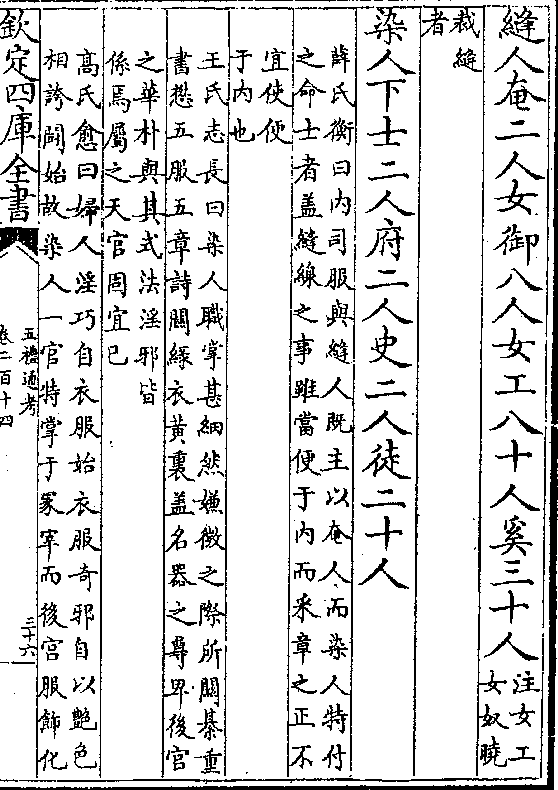 縫人奄二人女御八人女工八十人奚三十人注女工
女奴曉
裁縫
者
染人下士二人府二人史二人徒二十人
薛氏衡曰内司服與縫人既主以奄人而染人特付
之命士者盖縫線之事雖當便于内而采章之正不
宜使便
于内也
王氏志長曰染人職掌甚細然嫌微之際所關綦重
書懋五服五章詩關緑衣黄裏盖名器之尊卑後宫
之華朴與其式法淫邪皆
係焉屬之天官固宜已
高氏愈曰婦人淫巧自衣服始衣服奇邪自以艶色
相誇鬭始故染人一官特掌于冢宰而後宫服飾化
欽定四庫全書
五禮通考
卷二百十四
三十六